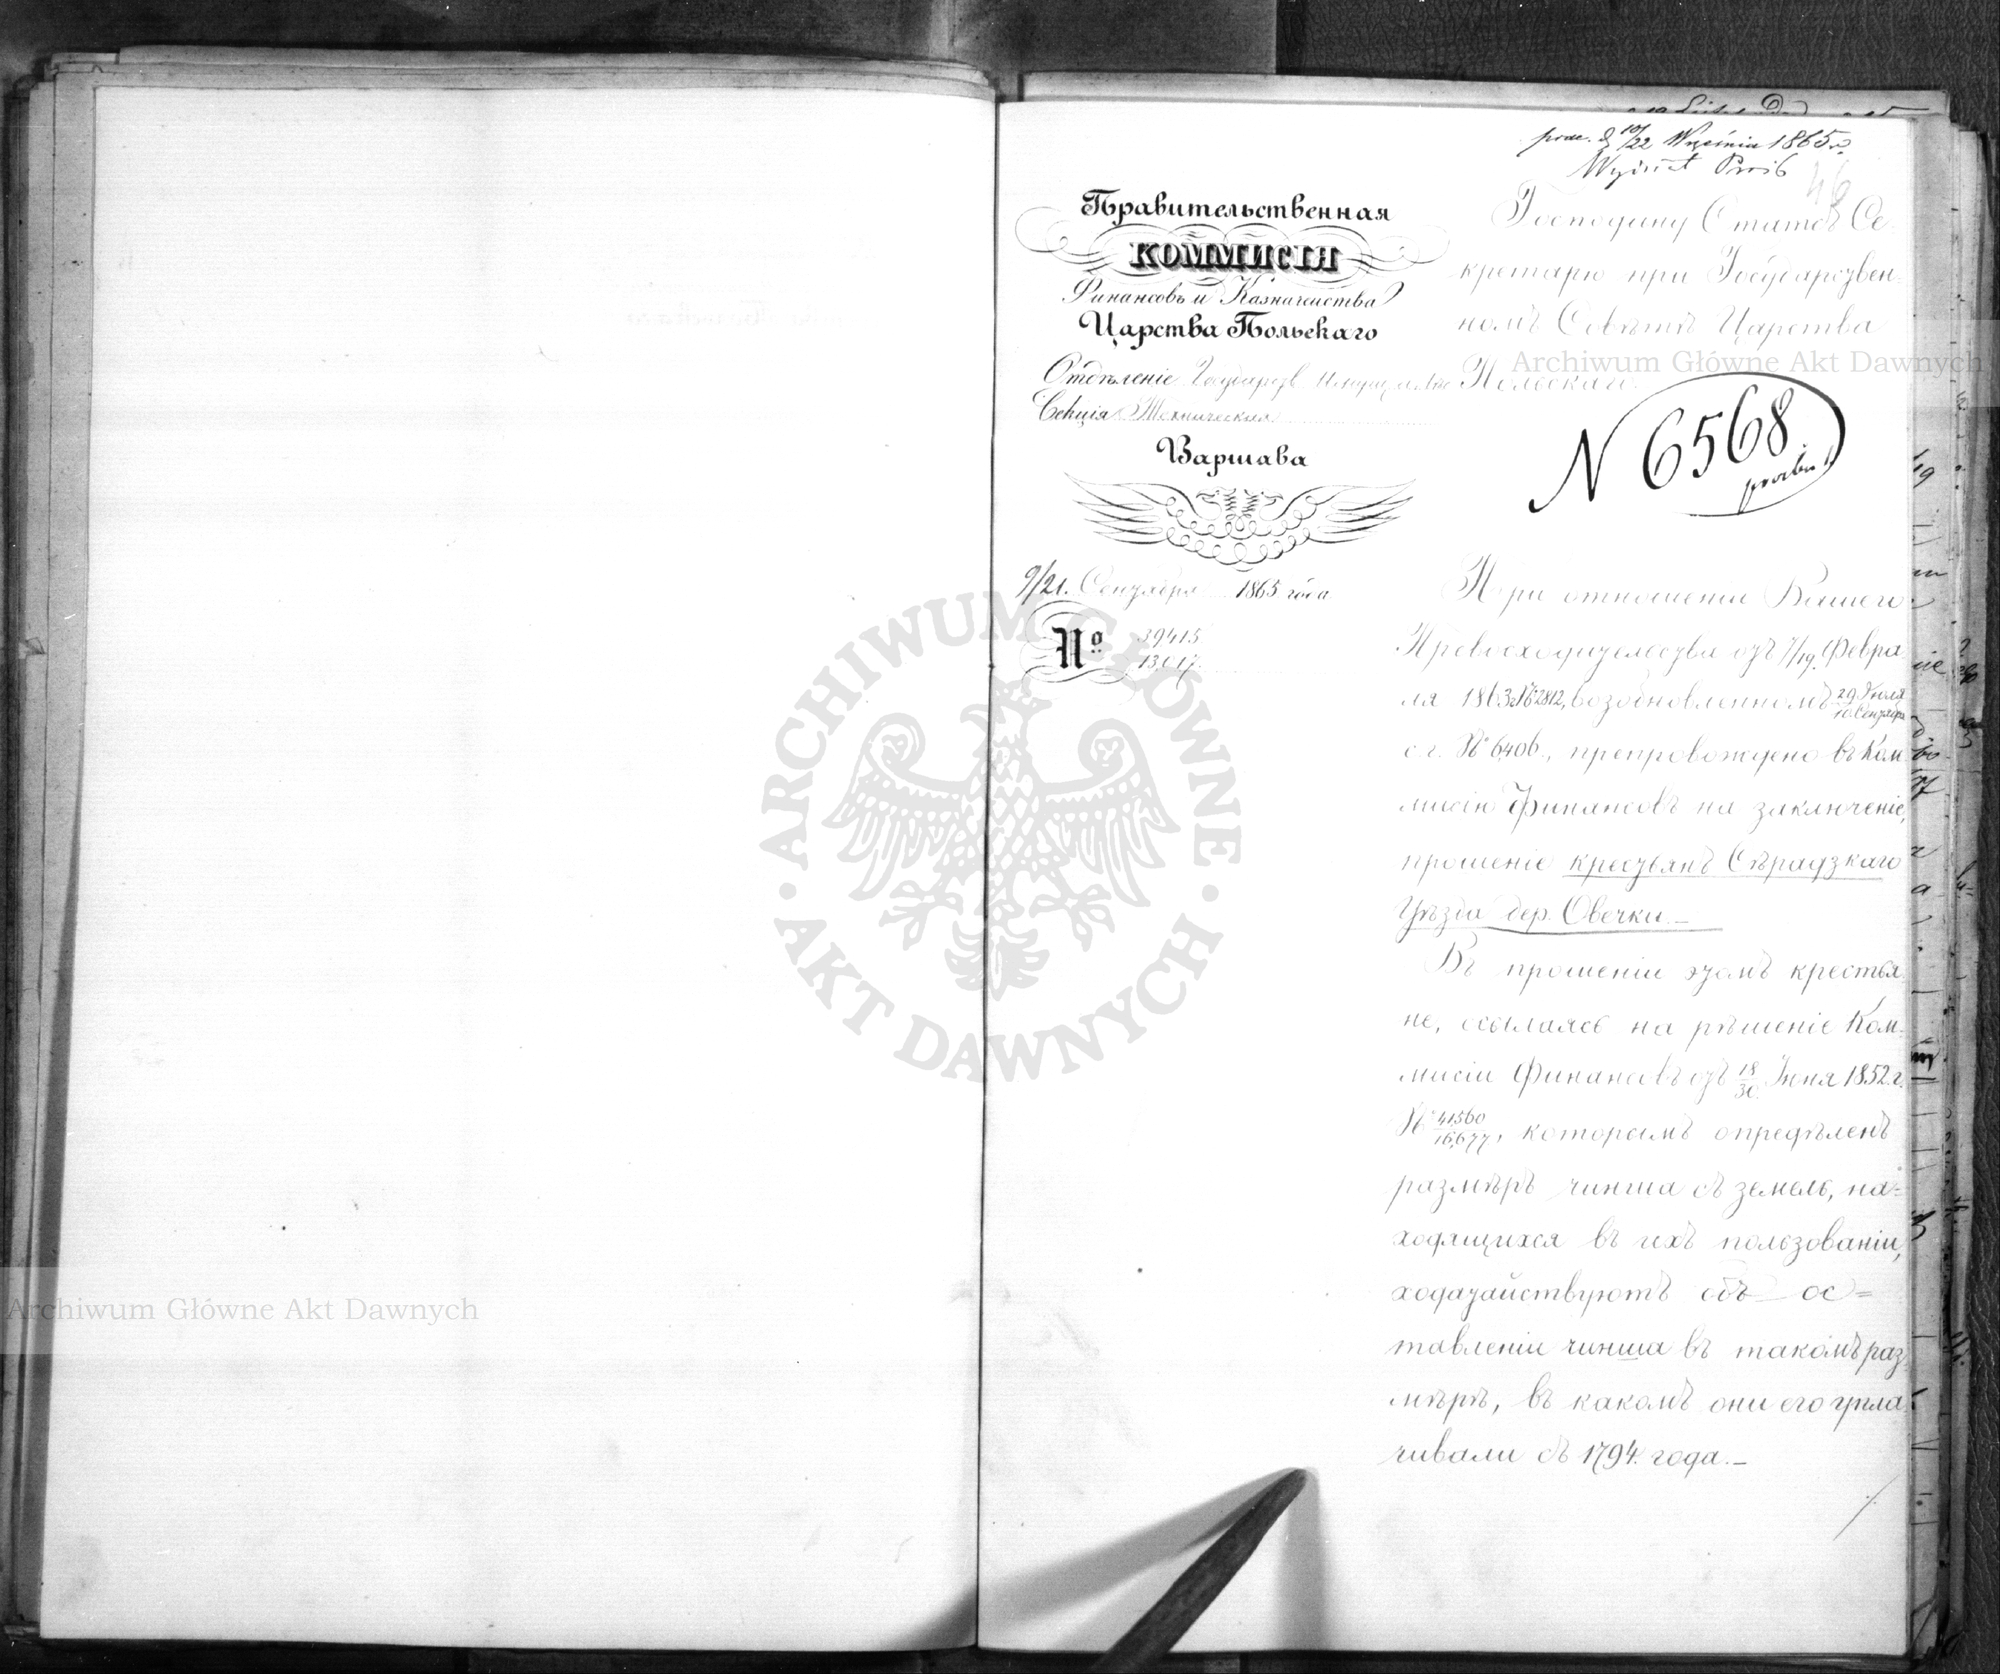 prae. d 10/22 Września 1865 r.
Wydział Prośb
46
Правительственная
КОММИСІЯ
Финансовъ и Казначейства
Царства Польскаго
Отдѣленіе Государств. Имуществъ
Секція Техническая
Варшава
9/21. Сентября 1865 года.
№ 39415
13017.
Господину Статсъ Се-
кретарю при Государствен-
номъ Совѣтѣ Царства
Польскаго.
N 6568
prośb
При отношеніи Вашего
Превосходительства отъ 7/19. Февра
ля 1863 г. № 2812, возобновленномъ 29 Іюля
10 Сентября
с. г. № 6406., препровождено въ Ком-
мисію Финансовъ на заключеніе,
прошеніе крестьянъ Сѣрадзкаго
Уѣзда дер. Овечки.—
Въ прошеніи этомъ крестья
не, ссылаясь на рѣшеніе Ком-
мисіи Финансовъ отъ 18/30 Іюня 1852 г.
№ 41560/16677, которымъ опредѣленъ
размѣръ чинша съ земель, на=
ходящихся въ ихъ пользованіи,
ходатайствуютъ объ ос=
тавленіи чинша въ такомъ раз-
мѣрѣ, въ какомъ они его упла
чивали съ 1794. года.—
Archiwum Główne Akt Dawnych
Archiwum Główne Akt Dawnych
· ARCHIWUM GŁÓWNE · AKT DAWNYCH